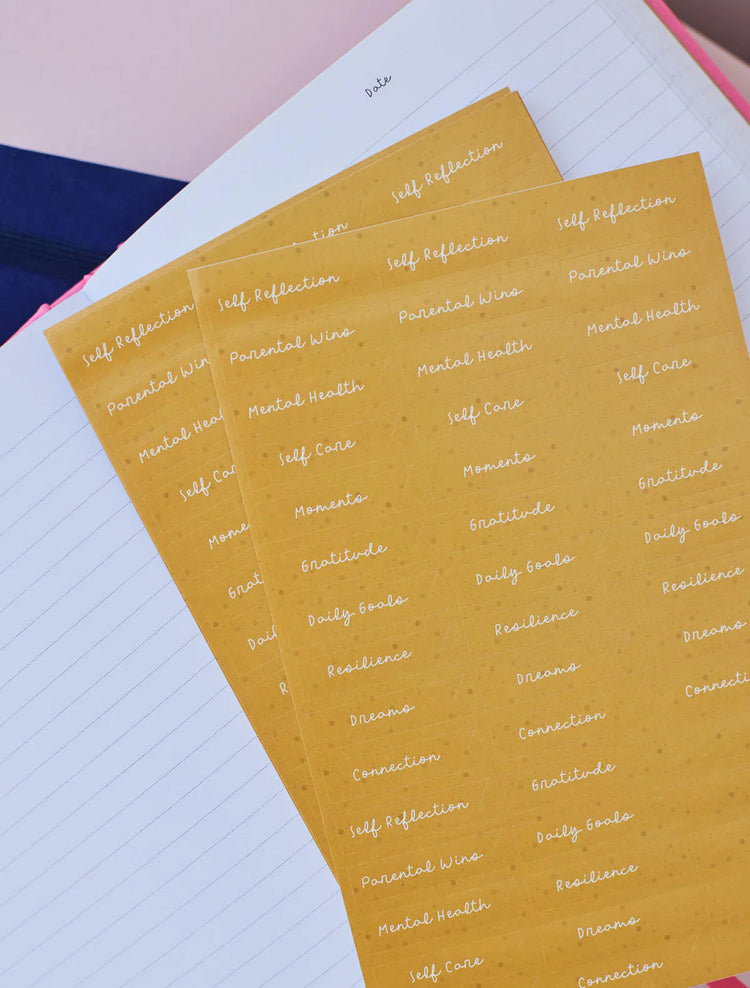 Date
Self Reflection tion Self Reflection
Parental Win
Mental Heal
Self Car
Mome
Grat
Dail
R
Self Reflection Self Reflection Self Reflection
Parental Wins Parental Wins Parental Wins
Mental Health Mental Health Mental Health
Self Care Self Care Self Care
Moments Moments Moments
Gratitude Gratitude Gratitude
Daily Goals Daily Goals Daily Goals
Resilience Resilience Resilience
Dreams Dreams Dreams
Connection Connection Connecti
Self Reflection Gratitude
Parental Wins Daily Goals
Mental Health Resilience
Self Care Dreams
Connection